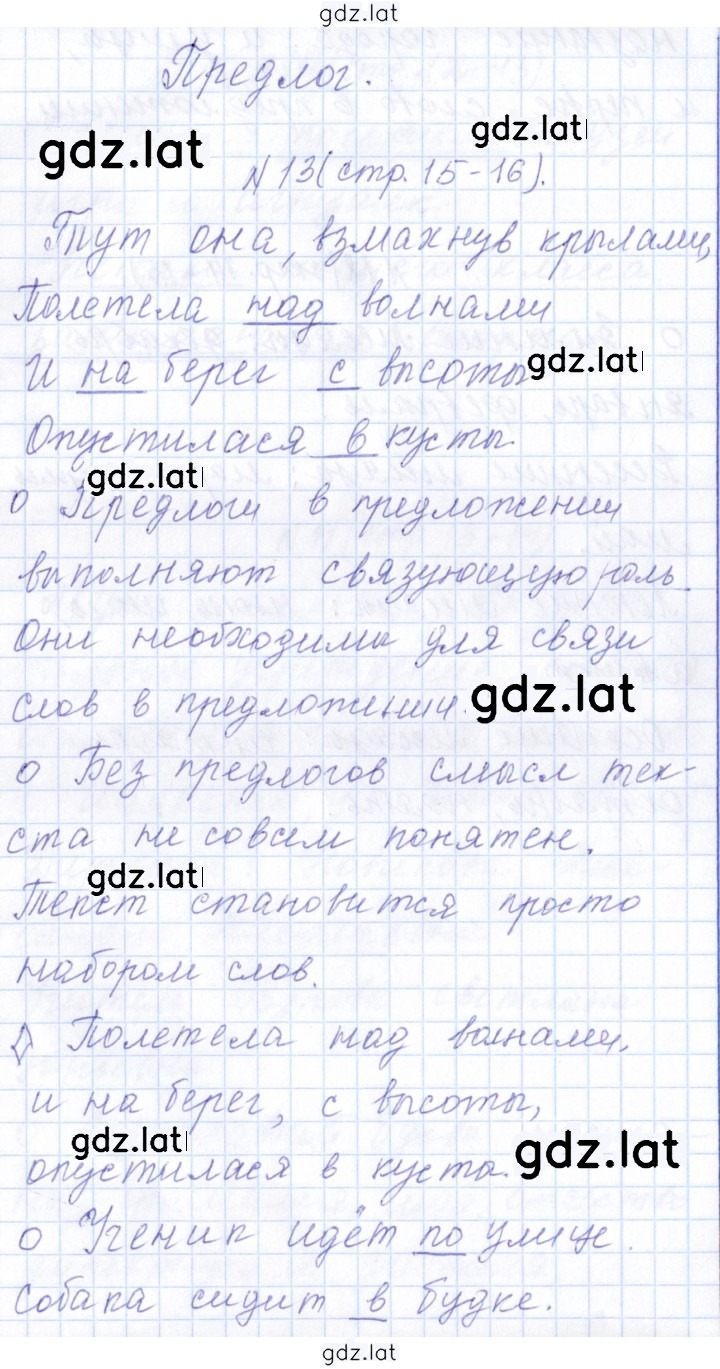 gdz.lat
Предлог.
gdz.lat
gdz.lat
N 13 (стр. 15-16).
Тут она, взмахнув крылами,
Полетела над волнами
И на берег с высоты
gdz.lat
Опустилася в кусты.
gdz.lat
о Предлоги в предложении
выполняют связующую роль.
Они необходимы для связи
слов в предложении.
gdz.lat
о Без предлогов смысл тек-
ста не совсем понятен.
gdz.lat
Текст становится просто
набором слов.
◊ Полетела над волнами,
и на берег, с высоты,
gdz.lat
gdz.lat
опустилася в куста.
о Ученик идёт по улице.
Собака сидит в будке.
gdz.lat